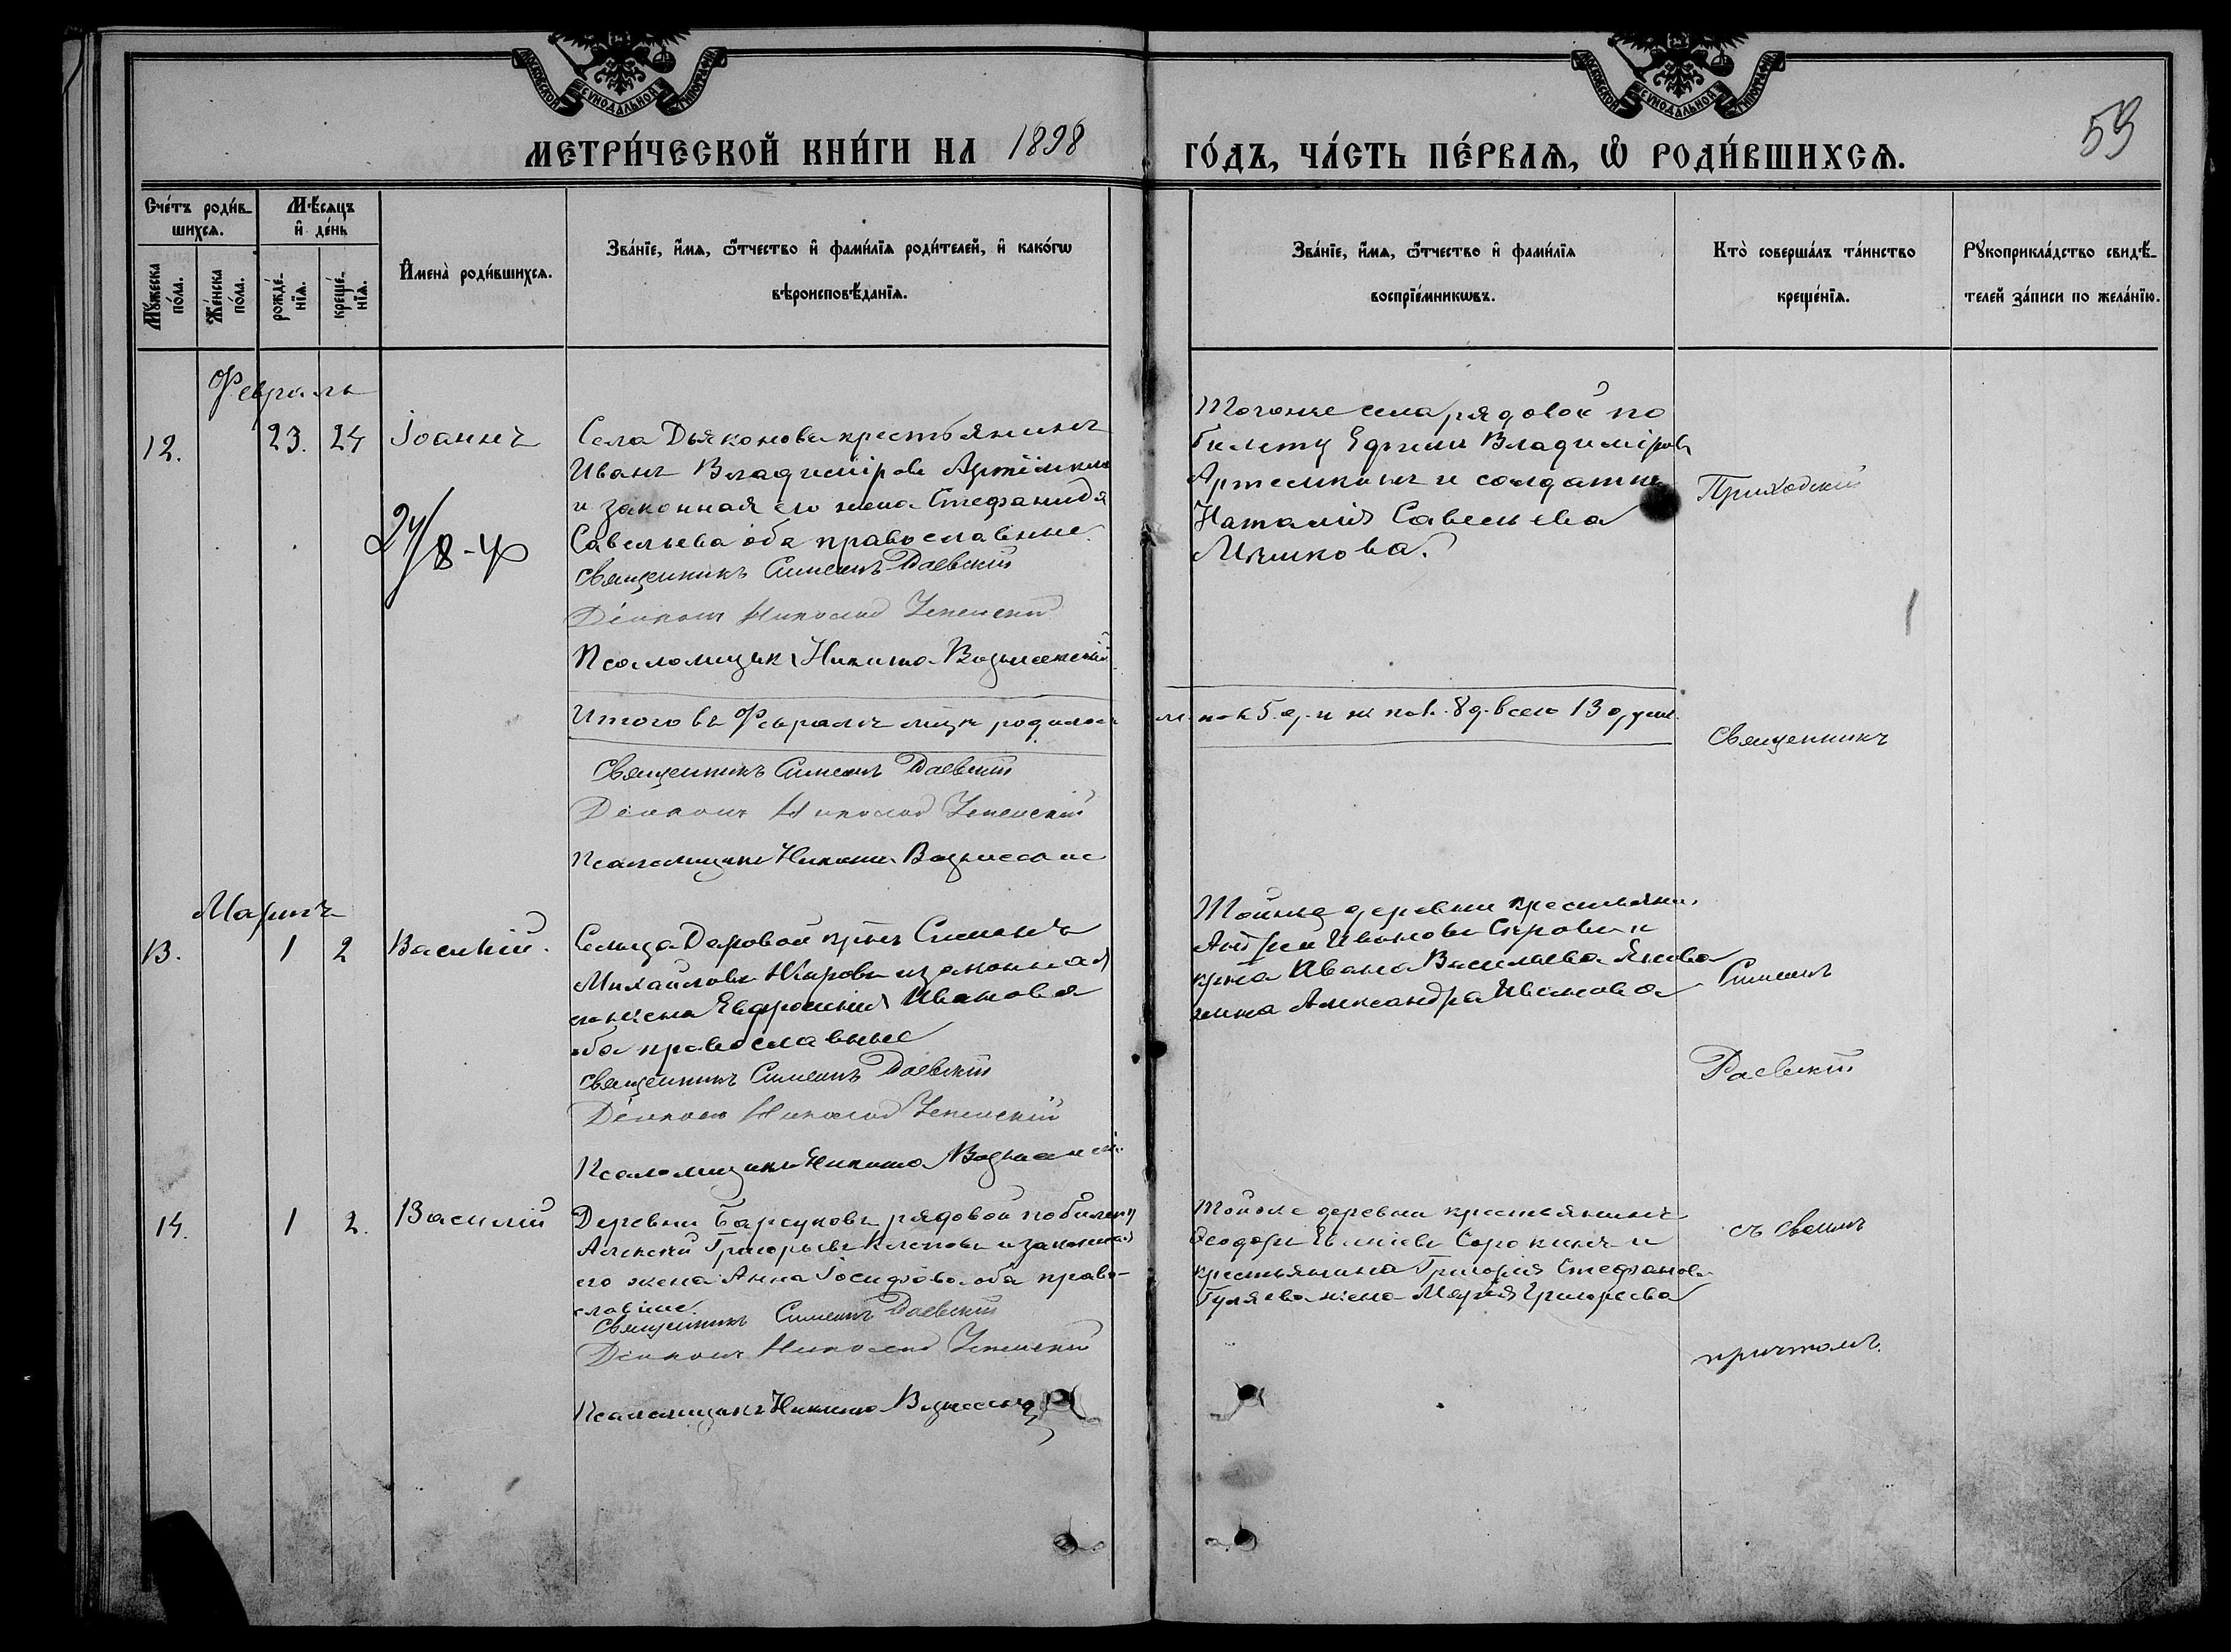 МОСКОВСКОЙ СУНОДАЛЬНОЙ ТИПОГРАФІИ
МОСКОВСКОЙ СУНОДАЛЬНОЙ ТИПОГРАФІИ
59
МЕТРИ́ЧЕСКОЙ КНИ́ГИ НА 1898
ГО́ДЪ, ЧА́СТЬ ПЕ́РВАѦ, Ѡ҆ РОДИ́ВШИХСѦ.
Сче́тъ роди́в-
шихсѧ.
Мѣ́сѧцъ
и҆ де́нь
Мꙋ́жеска
по́ла.
Же́нска
по́ла.
рожде́-
нїѧ.
креще́-
нїѧ.
И҆мена̀ роди́вшихсѧ.
Зва́нїе, и҆́мѧ, ѻ҆́тчество и҆ фами́лїѧ роди́телей, и҆ како́гѡ
вѣроисповѣ́данїѧ.
Зва́нїе, и҆́мѧ, ѻ҆́тчество и҆ фами́лїѧ
воспрїе́мникѡвъ.
Кто̀ соверша́лъ та́инство
креще́нїѧ.
Рꙋкоприкла́дство свидѣ́-
телей за́писи по жела́нїю.
Февраль
12.
23.
24
Іоаннъ
Села Дьяконова крестьянинъ
Иванъ Владиміровъ Артёмкинъ
и законная его жена Стефанида
Савельева оба православные.
Священникъ Симеонъ Раевскій
Діаконъ Николай Успенскій
Псаломщикъ Никита Вознесенскій
24/8-
Тогоже села рядовой по
билету Ефимъ Владиміровъ
Артемкинъ и солдатка
Наталія Савельева
Приходскій
Итого въ Февралѣ мцѣ родилось
м. пола 5 д. и ж. пола 8 д. всего 13 душ.
Священникъ Симеонъ Раевскій
Діаконъ Николай Успенскій
Псаломщикъ Никита Вознесенскій
Священникъ
Мартъ
13.
1
2
Василій.
Сельца крнъ Симеонъ
Михайловъ и законная
его жена Евфросинія Иванова
оба православные
Священникъ Симеонъ Раевскій
Діаконъ Николай Успенскій
Псаломщикъ Никита Вознесенскій
Тойже деревни крестьянинъ
Андрей Ивановъ и
крна Ивана Васильева
жена Александра Иванова
Симеонъ
Раевскій
14.
1
2.
Василій
Деревни Барсуковъ рядовой по билету
Алексѣй Григорьевъ и законная
его жена Анна Іосифова оба право-
славные.
Священникъ Симеонъ Раевскій
Діаконъ Николай Успенскій
Псаломщикъ Никита Вознесенскій
Тойже деревни крестьянинъ
Ѳеодоръ Сорокинъ и
крестьянина Григорія Стефанова
Гуляева жена Марія Григорьева
съ своимъ
причтомъ.